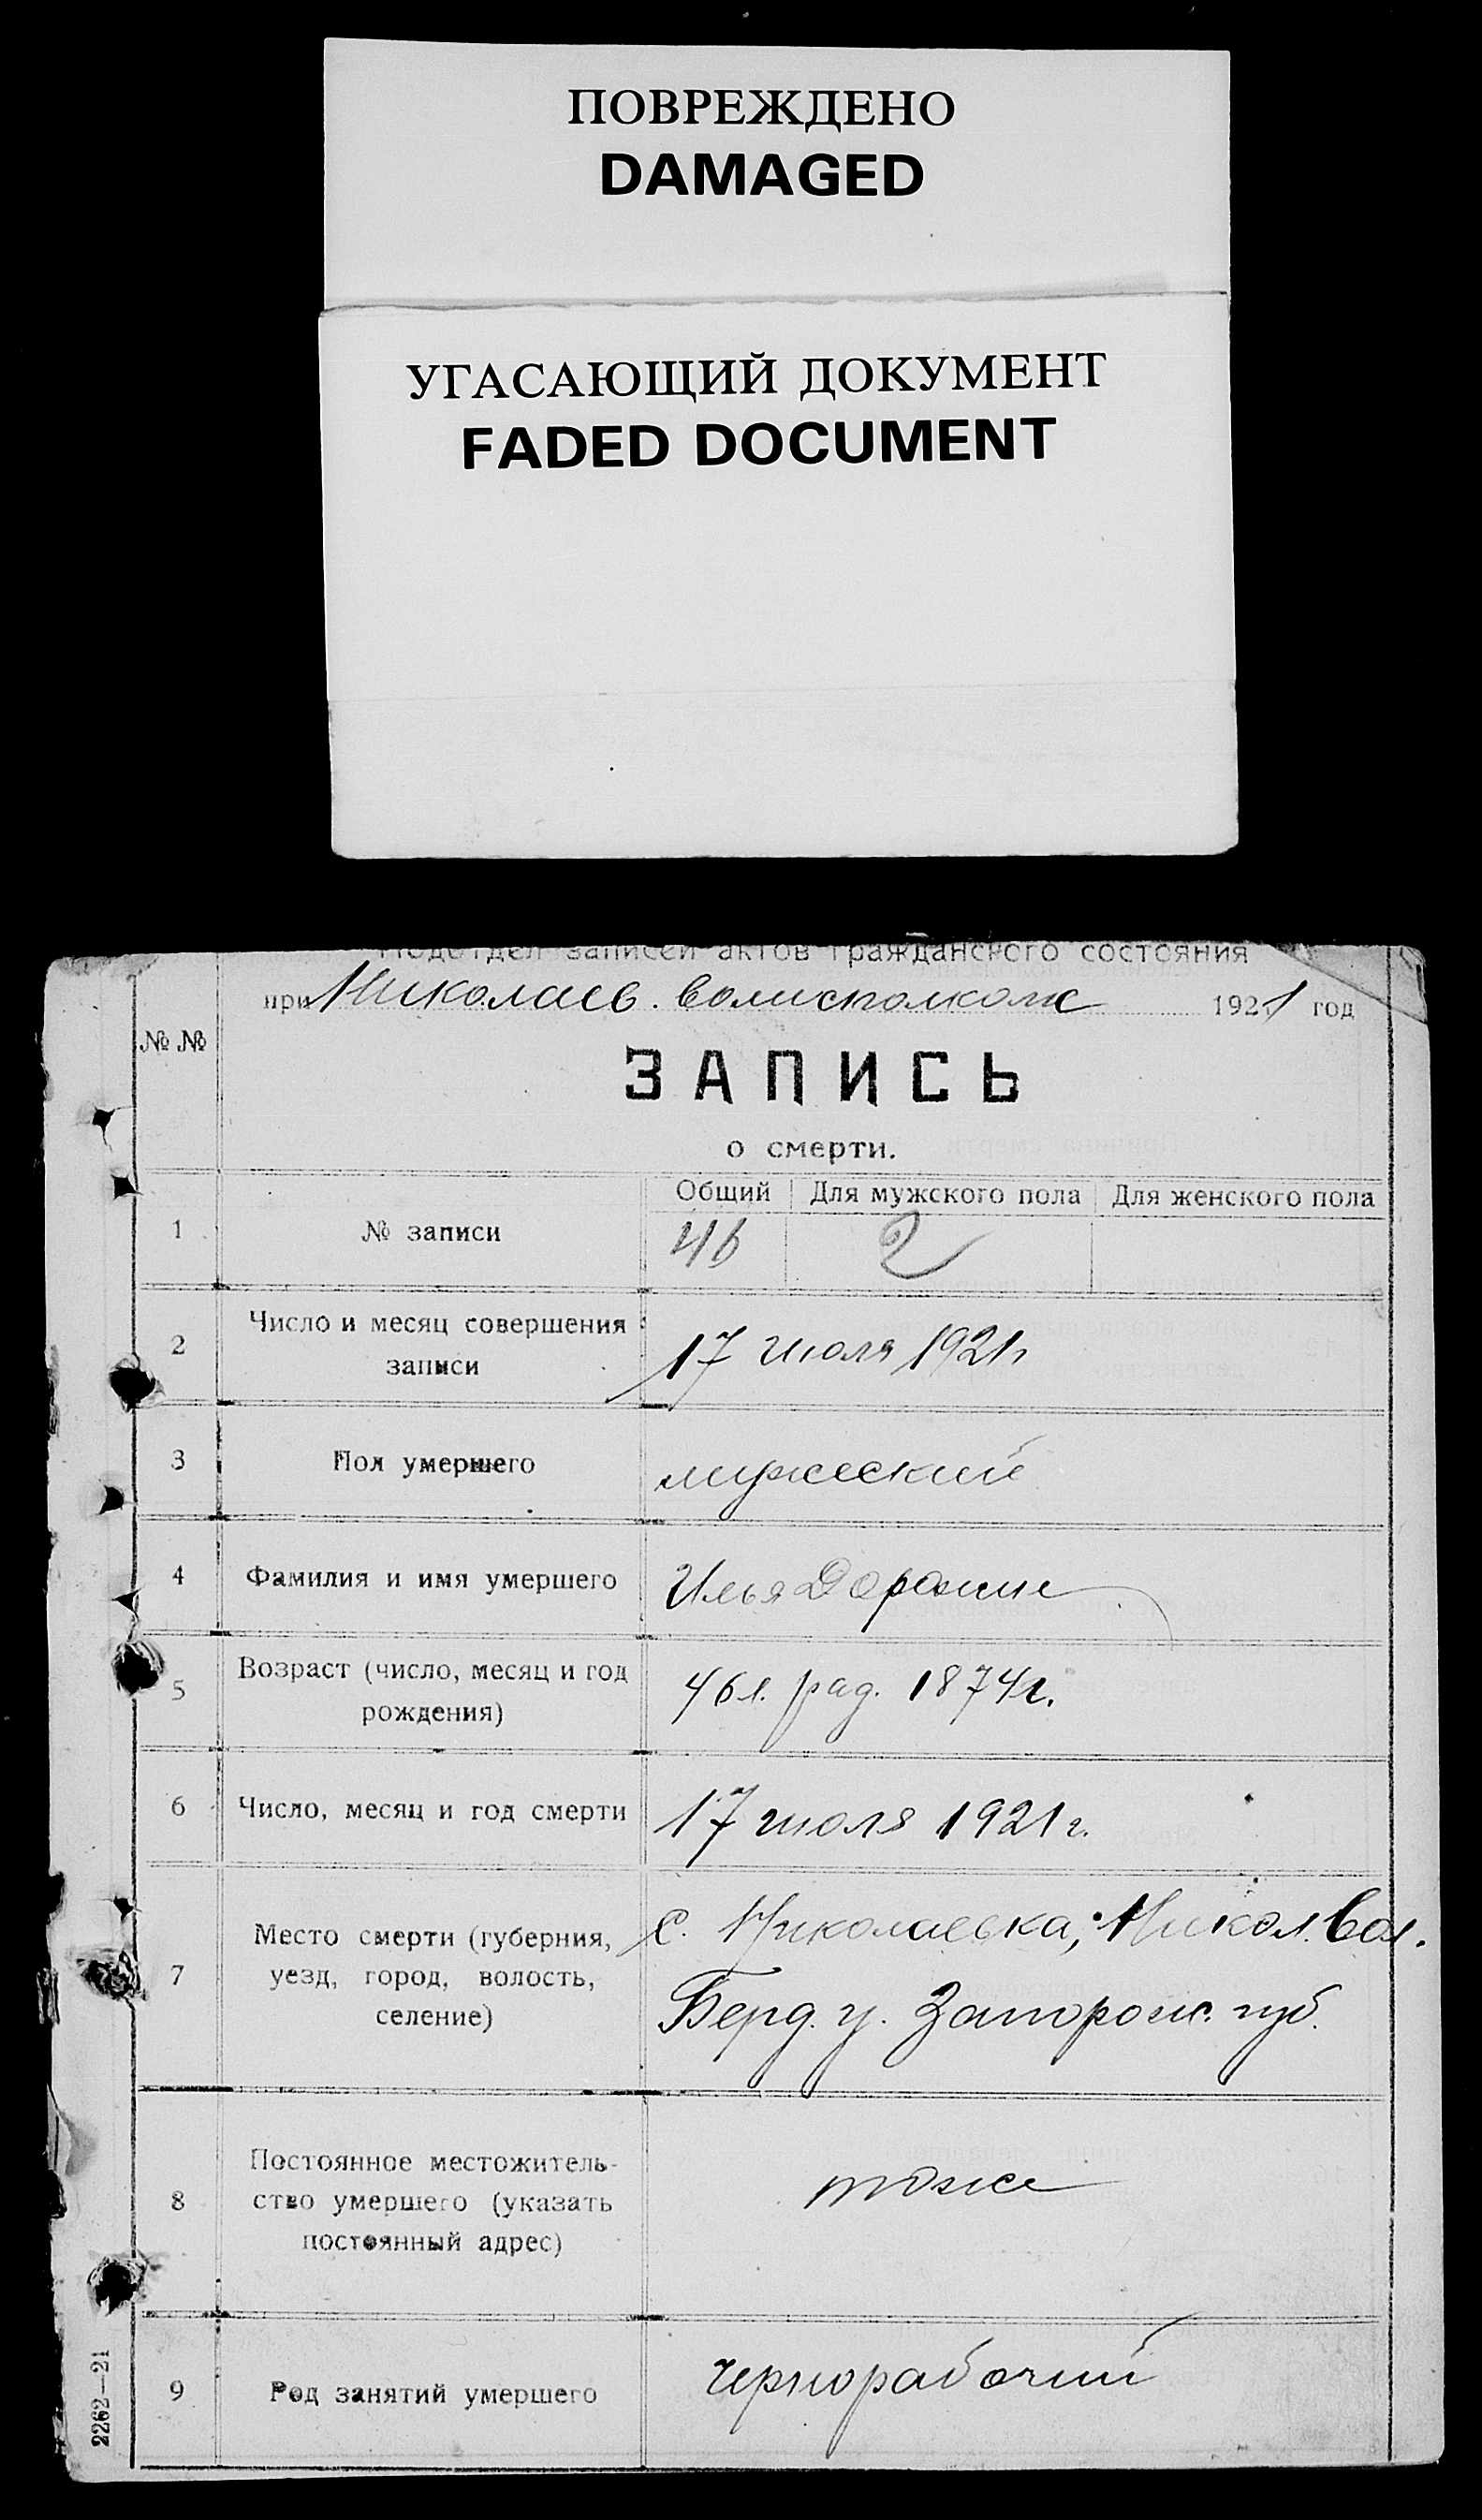 ПОВРЕЖДЕНО
DAMAGED
УГАСАЮЩИЙ ДОКУМЕНТ
FADED DOCUMENT
Подотдел записей актов гражданского состояния
при Николаев. волисполкоме 1921 год
№ №
ЗАПИСЬ
о смерти.
Общий Для мужского пола Для женского пола
1 № записи 46 2
2 Число и месяц совершения
записи 17 июля 1921г
3 Пол умершего мужеский
4 Фамилия и имя умершего Илья
5 Возраст (число, месяц и год
рождения) 46 л. рад. 1874г.
6 Число, месяц и год смерти 17 июля 1921 г.
7 Место смерти (губерния,
уезд, город, волость,
селение)
с. Николаевка, Никол. Вол.
Берд. у. Запорож. губ.
8 Постоянное местожитель-
ство умершего (указать
постоянный адрес)
тоже
9 Род занятий умершего чернорабочий
2262—21